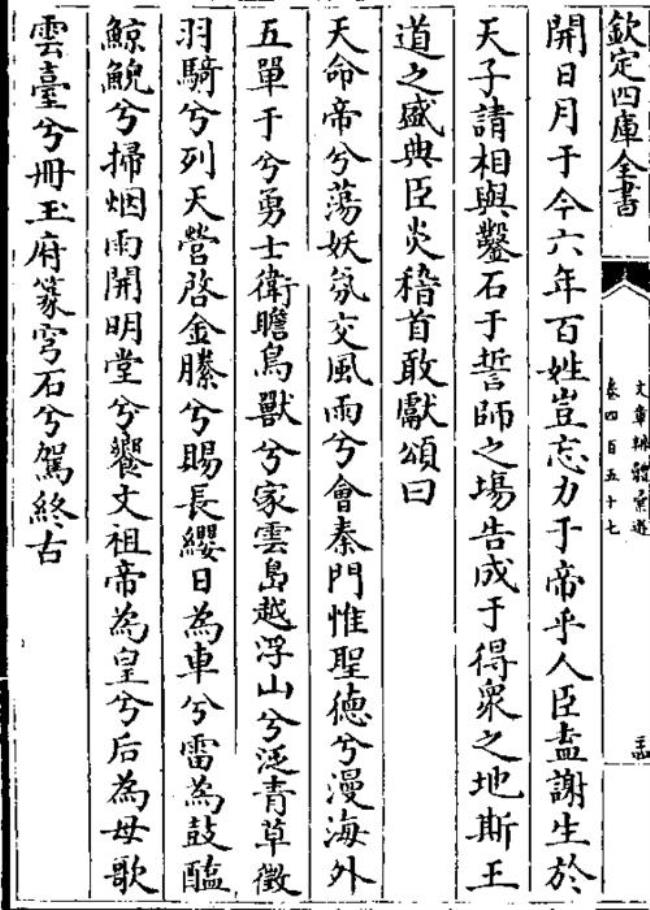 欽定四庫全書
文章辨體彙選
卷四百五十七
開日月于今六年百姓豈忘力于帝乎人臣盍謝生於
天子請相與鑿石于誓師之場告成于得衆之地斯王
道之盛典臣炎稽首敢獻頌曰
天命帝兮蕩妖氛交風雨兮會秦門惟聖德兮漫海外
五單于兮勇士衛瞻鳥獸兮家雲島越浮山兮泛青草徵
羽騎兮列天營啓金縢兮賜長纓日為車兮雷為鼓醢
鯨鯢兮掃烟雨開明堂兮饗文祖帝為皇兮后為母歌
雲臺兮冊玉府篆穹石兮駕終古